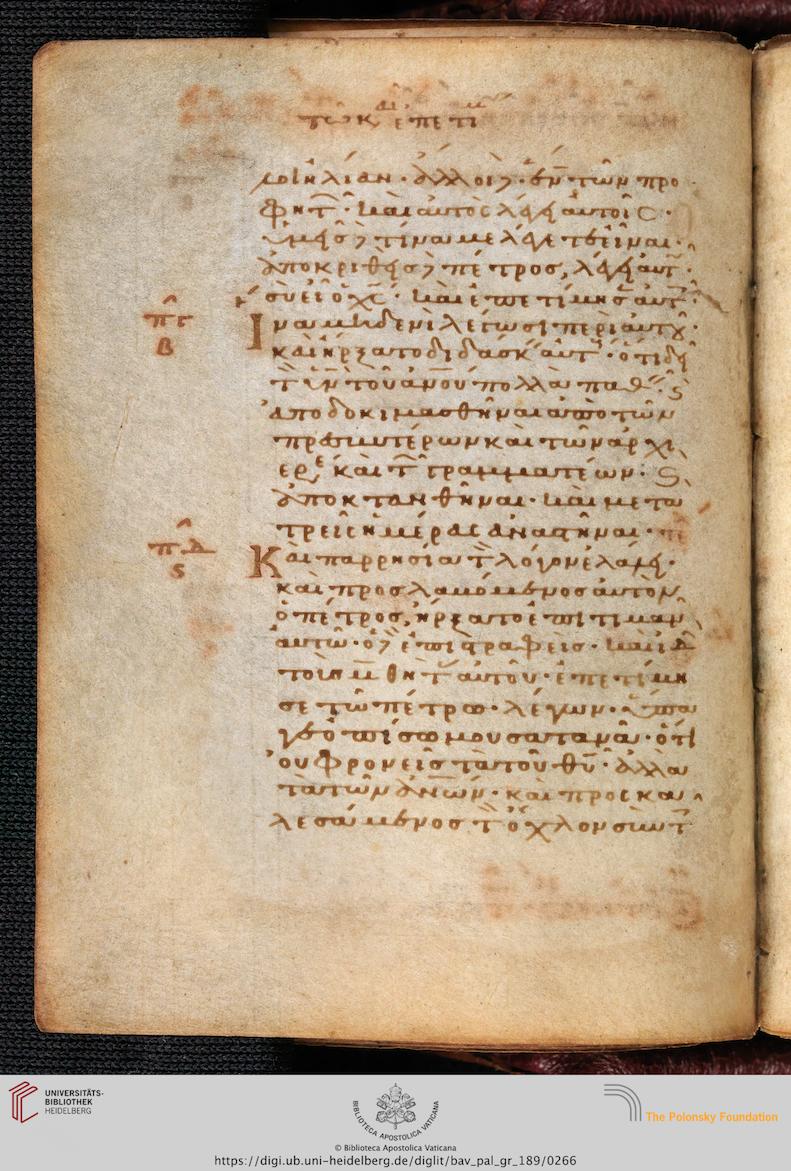 τῶ κ ἐπετι
μοι ἠλίαν· ἄλλοι δὲ· ἕνα τῶν προ
φητ· καὶ αὐτὸς λέγει αὐτοῖς·
ὑμεῖς δὲ τίνα με λέγετε εἶναι·
ἀποκριθεὶς δὲ πέτρος, λέγει αὐτ·
σὺ εἶ ὁ χς· καὶ ἐπετίμησ αὐτ
Ἵνα μηδενὶ λέγωσι περὶ αὐτοῦ·
πγ
β
καὶ ἤρξατο διδάσκ αὐτ· ὅτι δεῖ
τ υν τοῦ ανου πολλὰ παθ·
ἀποδοκιμασθῆναι ἀπὸ τῶν
πρεσβυτέρων καὶ τῶν ἀρχι
ερε καὶ τ γραμματέων·
ἀποκτανθῆναι· καὶ μετὰ
τρεῖς ἡμέρας ἀναστῆναι·
πδ
ς
Καὶ παρρησία τ λόγον ἐλάλει·
καὶ προσλαβόμενος αὐτὸν
ὁ πέτρος, ἤρξατο ἐπιτιμᾶν
αὐτῶ· ὁ δὲ ἐπιστραφεὶς· καὶ ἰδ
τοὺς μαθητ αὐτοῦ· ἐπετίμη
σε τῶ πέτρω· λέγων· ὕπα
γε ὀπίσω μου σατανᾶ· ὅτι
οὐ φρονεῖς τὰ τοῦ θυ· ἀλλὰ
τὰ τῶν ἀνων· καὶ προσκα
λεσάμενος τ ὄχλον σὺν τ
UNIVERSITÄTS-
BIBLIOTHEK
HEIDELBERG
BIBLIOTECA APOSTOLICA VATICANA
The Polonsky Foundation
© Biblioteca Apostolica Vaticana
https://digi.ub.uni-heidelberg.de/diglit/bav_pal_gr_189/0266